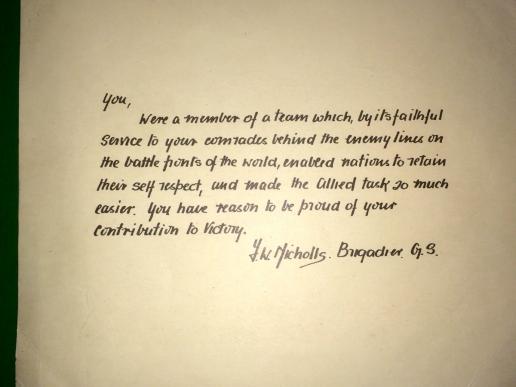 You,
Were a member of a team which, by its faithful
service to your comrades behind the enemy lines on
the battle fronts of the world, enabled nations to retain
their self respect, and made the Allied task so much
easier. You have reason to be proud of your
contribution to Victory.
F.W. Nicholls. Brigadier. G.S.